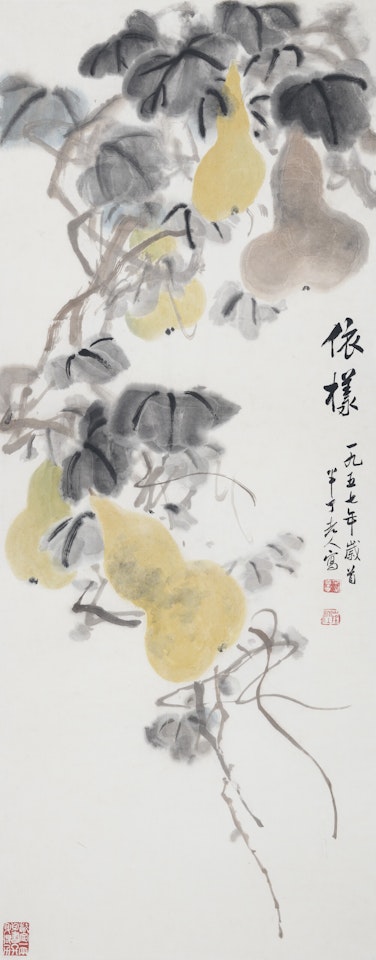 依樣
一九五七年歲首
半丁老人寫